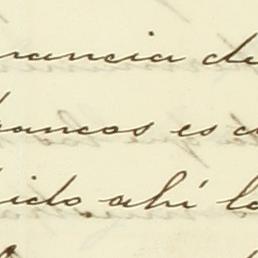 rancia de
francos es
ido ahí lo